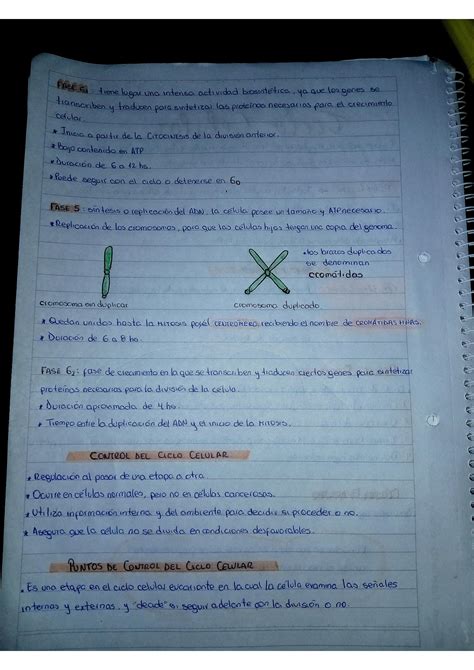 FASE G1: tiene lugar una intensa actividad biosintética, ya que los genes se
transcriben y traducen para sintetizar las proteínas necesarias para el crecimiento
celular.
* Inicia a partir de la citocinesis de la división anterior.
* Bajo contenido en ATP
* Duración de 6 a 12 hs.
* Puede seguir con el ciclo o detenerse en G0
FASE S: síntesis o replicación del ADN, la célula posee un tamaño y ATP necesario.
* Replicación de los cromosomas, para que las células hijas tengan una copia del genoma.
• los brazos duplicados
se denominan
cromátidas
cromosoma sin duplicar
cromosoma duplicado
* Quedan unidas hasta la MITOSIS por el CENTRÓMERO, recibiendo el nombre de CROMÁTIDAS HNAS.
* Duración de 6 a 8 hs.
FASE G2: fase de crecimiento en la que se transcriben y traducen ciertos genes para sintetizar
proteínas necesarias para la división de la célula.
* Duración aproximada de 4 hs.
* Tiempo entre la duplicación del ADN y el inicio de la MITOSIS.
CONTROL DEL CICLO CELULAR
* Regulación al pasar de una etapa a otra.
* Ocurre en células normales, pero no en células cancerosas.
* Utiliza información interna y del ambiente para decidir si proceder o no.
* Asegura que la célula no se divida en condiciones desfavorables.
PUNTOS DE CONTROL DEL CICLO CELULAR
• Es una etapa en el ciclo celular eucarionte en la cual la célula examina las señales
internas y externas y "decide" si seguir adelante con la división o no.